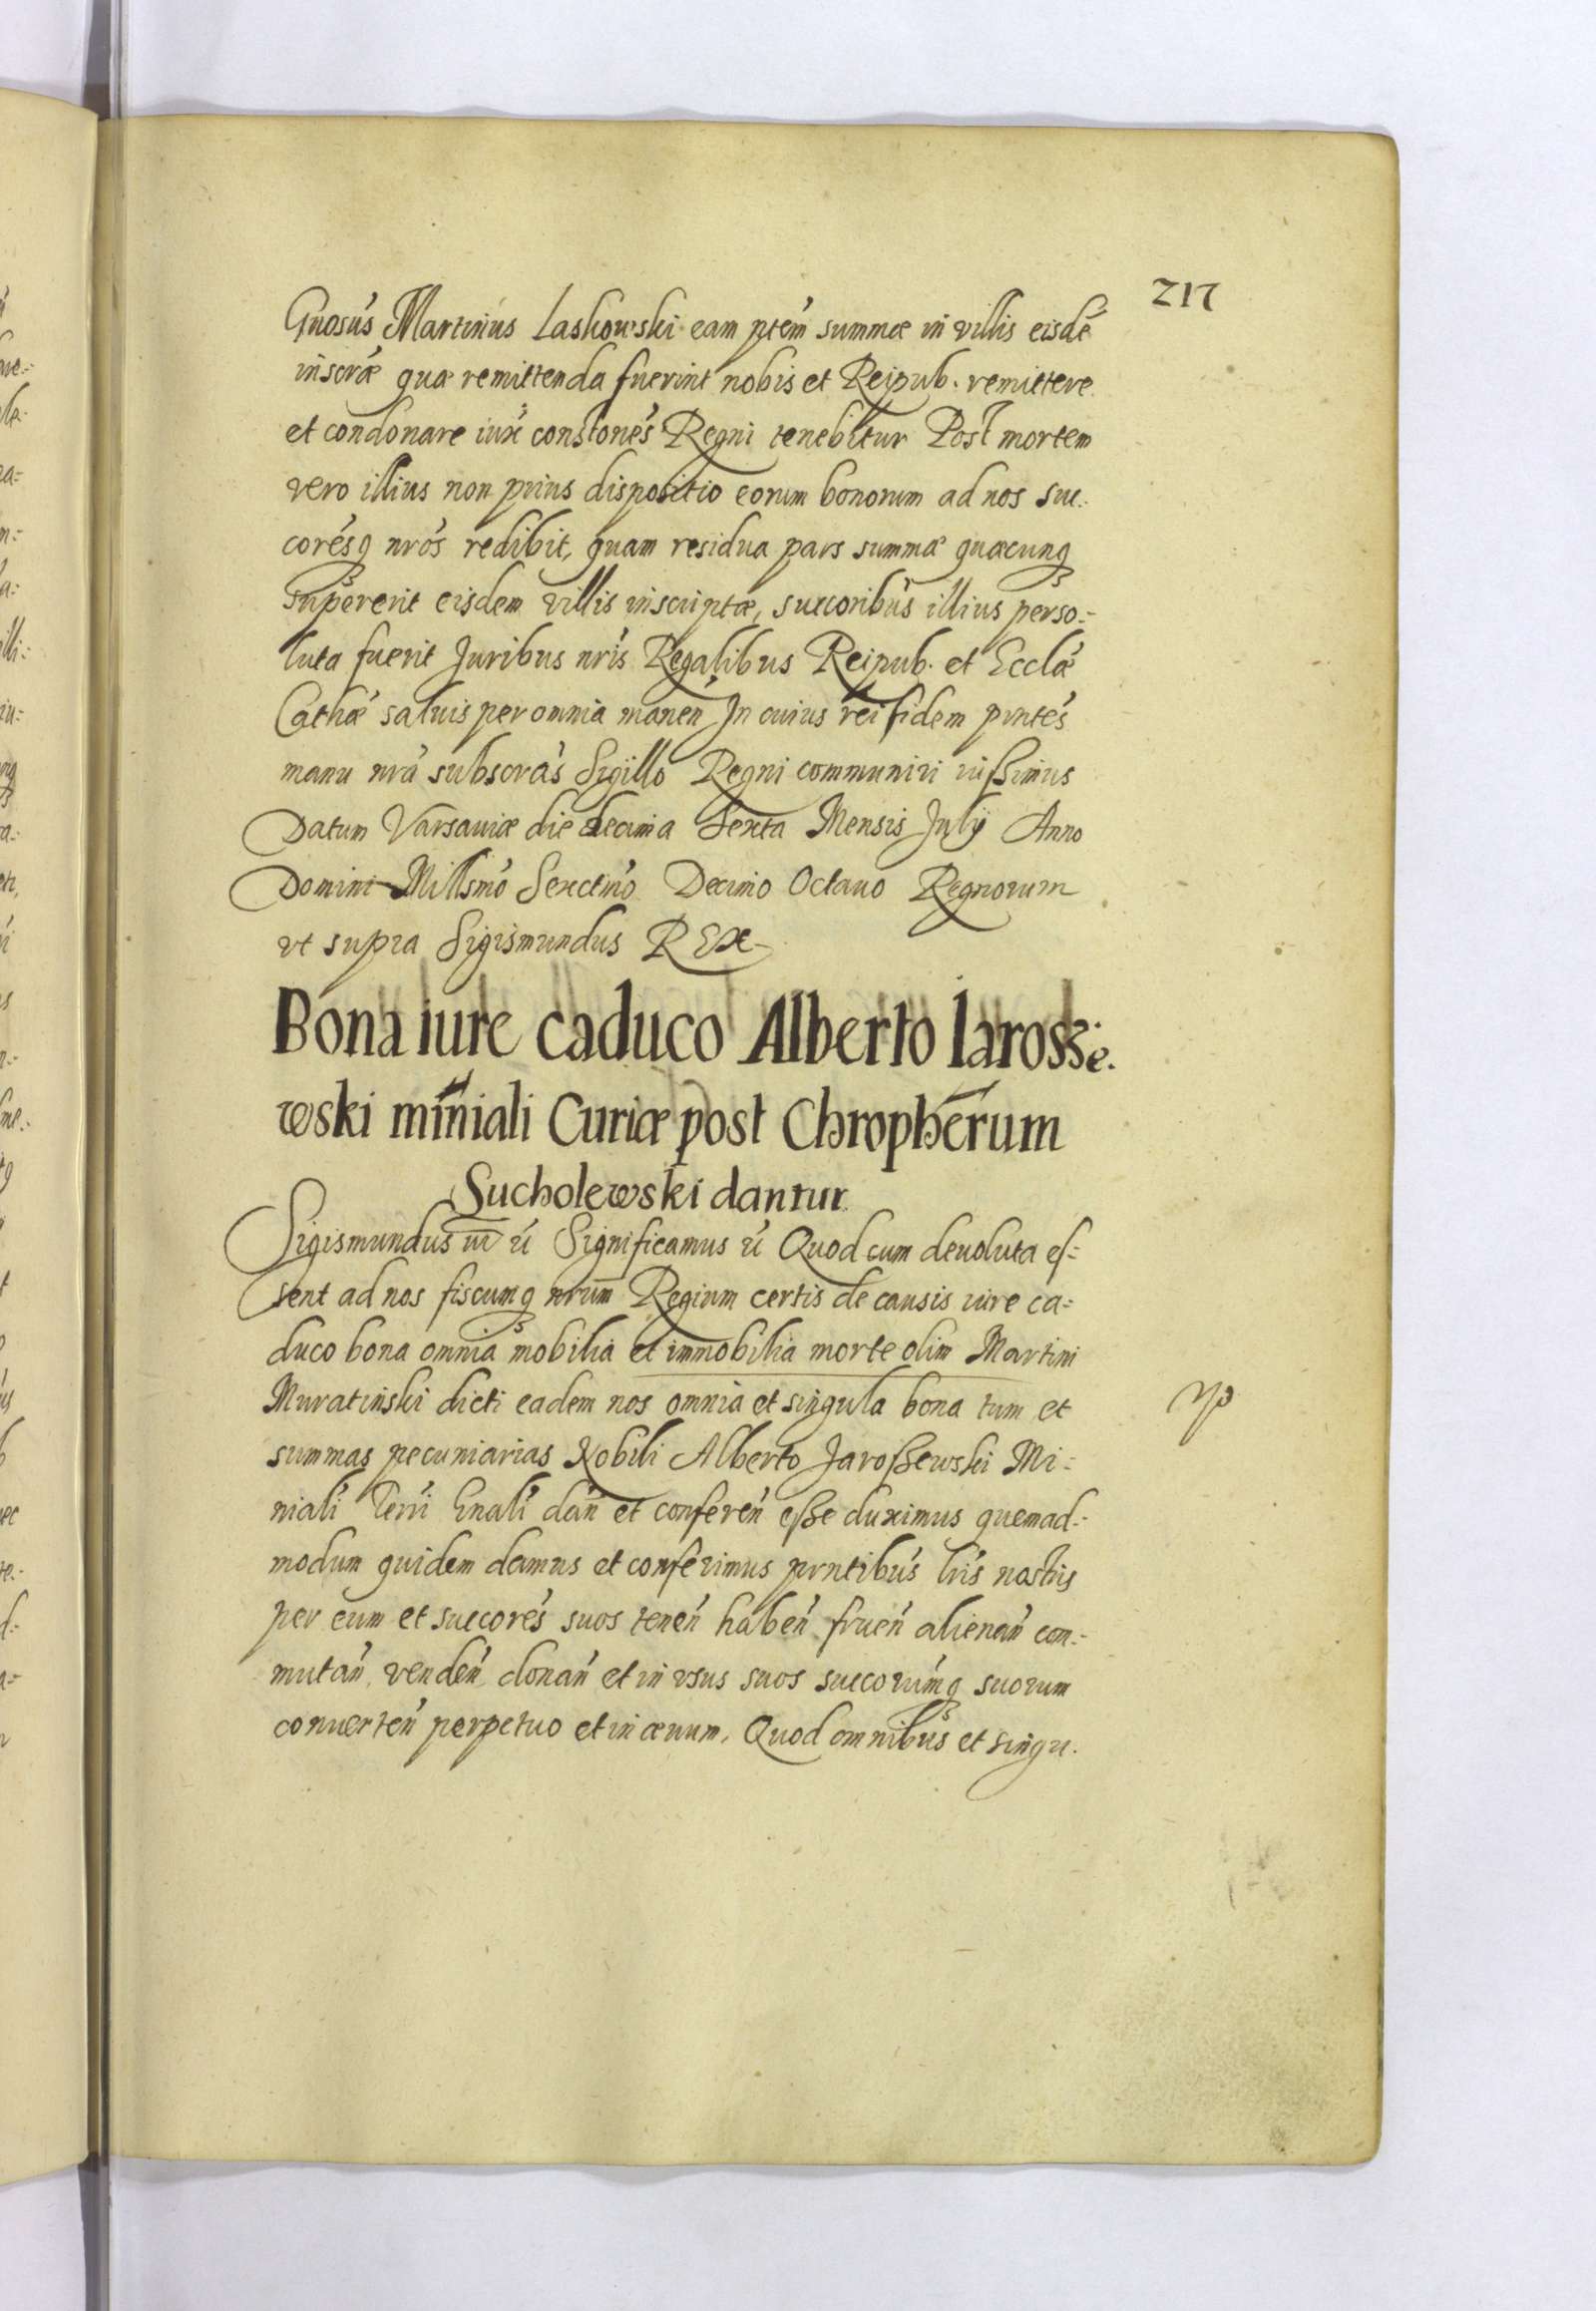 217
Gnosús Martinus Laskowski eam ptem summæ in villis eisdé
inscræ quæ remittenda fuerint nobis et Reipub. remittere
et condonare iux constones Regni tenebitur Post mortem
vero illius non prius dispositio eorum bonorum ad nos suc-
corésq nrós redibit, quam residua pars summæ quæcunq
supererit eisdem villis inscriptæ, succoribus illius perso-
luta fuerit Juribus nris Regalibus Reipub. et Ecclæ
Cathæ saluis per omnia manen In cuius rei fidem pntés
manu nra subscras Sigillo Regni communiri iussimus
Datum Varsauiæ die decima Sexta Mensis July Anno
Domini Millsmo Sexctmo Decimo Octauo Regnorum
vt supra Sigismundus REX
Bona iure caduco Alberto Iarossze-
wski miniali Curiæ post Chropherum
Sucholewski dantur
Sigismundus III ú Significamus ú Quod cum deuoluta es-
sent ad nos fiscumq nrum Regium certis de causis iure ca-
duco bona omnia mobilia et immobilia morte olim Martini
Muratinski dicti eadem nos omnia et singula bona tum et
summas pecuniarias Nobili Alberto Jaroszewski Mi-
niali dan et conferen esse duximus quemad-
modum quidem damus et conferimus pntibus lris nostris
per eum et succores suos tenen haben fruen alienan com-
mutan, venden donan et in vsus suos succorumq suorum
conuerten perpetuo et in æuum. Quod omnibus et singu-